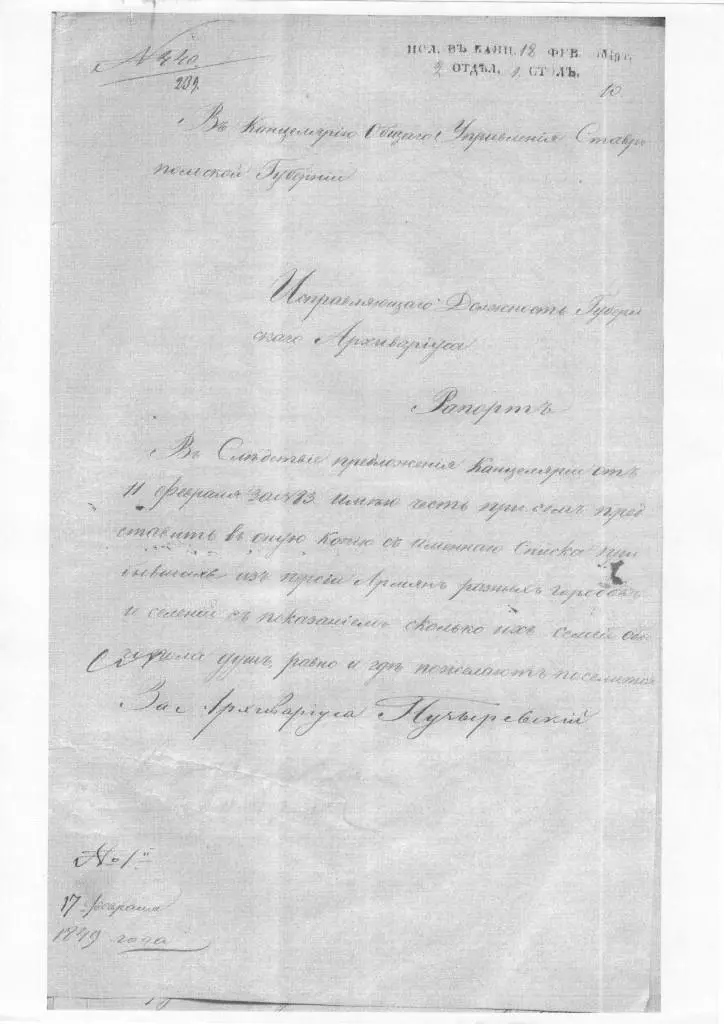 № 440.
209.
ПОЛ. ВЪ КАНЦ. 18 ФЕВ.
2 ОТДѢЛ. 1 СТОЛЪ.
10
Въ Канцелярію Общаго Управленія Ставро
польской Губерніи
Исправляющаго Должность Губерн
скаго Архиваріуса
Рапортъ
Въ Слѣдствіе предложенія Канцеляріи отъ
11 февраля за № 83 имѣю честь при семъ пред
ставить въ оную Копію съ именнаго Списка при
бывшихъ изъ персіи Армянъ разныхъ городовъ
и селеній съ показаніемъ сколько ихъ семей
числа душъ, равно и гдѣ пожелаютъ поселится
За Архиваріуса Пучыревскій
№ 1й
17 февраля
1849 года